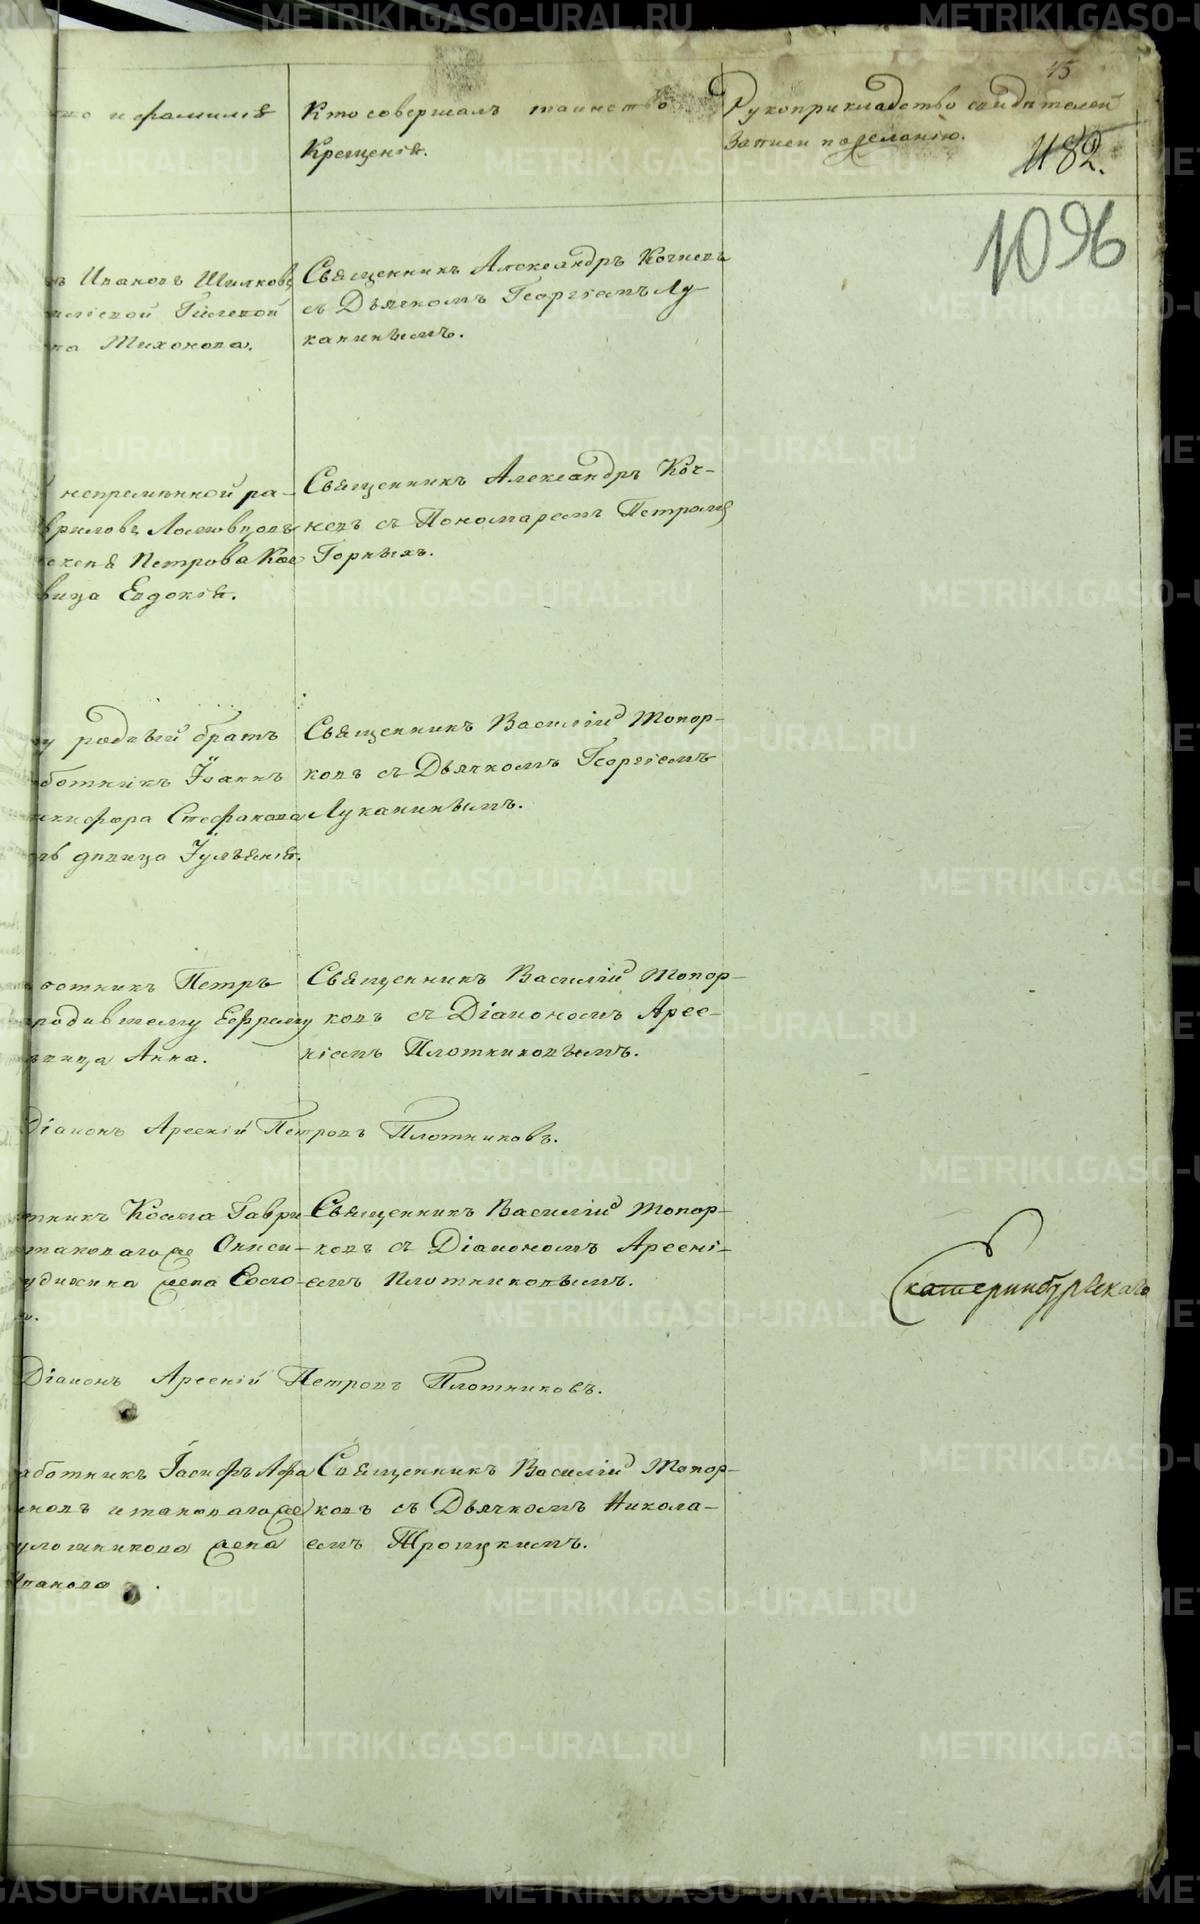 45
и фамилія
Кто совершалъ таинство
Крещенія.
Рукоприкладство свидѣтелей
записи по желанію.
1182.
1096
Ивановъ Шилковъ
на Тихонова.
Священникъ Александръ Кочневъ
съ Дьячкомъ Георгіемъ Лу
канинымъ.
непремѣнной ра-
Петрова Кос
вица Евдокія.
Священникъ Александръ Коч-
невъ съ Пономаремъ Петромъ
Горныхъ.
родный братъ
ботникъ Іоаннъ
Никифора Стефанова
дѣвица Іуліанія.
Священникъ Василій Топор-
ковъ съ Дьячкомъ Георгіемъ
Луканинымъ.
ботникъ Петръ
родившему Ефрему
вица Анна.
Священникъ Василій Топор-
ковъ съ Діакономъ Арсе-
ніемъ Плотниковымъ.
Діаконъ Арсеній Петровъ Плотниковъ.
тникъ Косма Гаври
таковаго же Ониси-
Священникъ Василій Топор-
ковъ съ Діакономъ Арсені-
емъ Плотниковымъ.
Екатеринбургскаго
Діаконъ Арсеній Петровъ Плотниковъ.
аботникъ Іосифъ Афа
новъ и таковаго же
Священникъ Василій Топор-
ковъ съ Дьячкомъ Никола-
емъ Троицкимъ.
METRIKI.GASO-URAL.RU